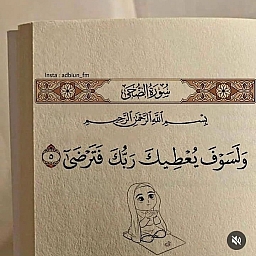 Insta : adbiun_fm
سُورَةُ الضُّحَىٰ
بِسْمِ اللَّهِ الرَّحْمَٰنِ الرَّحِيمِ
وَلَسَوْفَ يُعْطِيكَ رَبُّكَ فَتَرْضَىٰٓ ٥